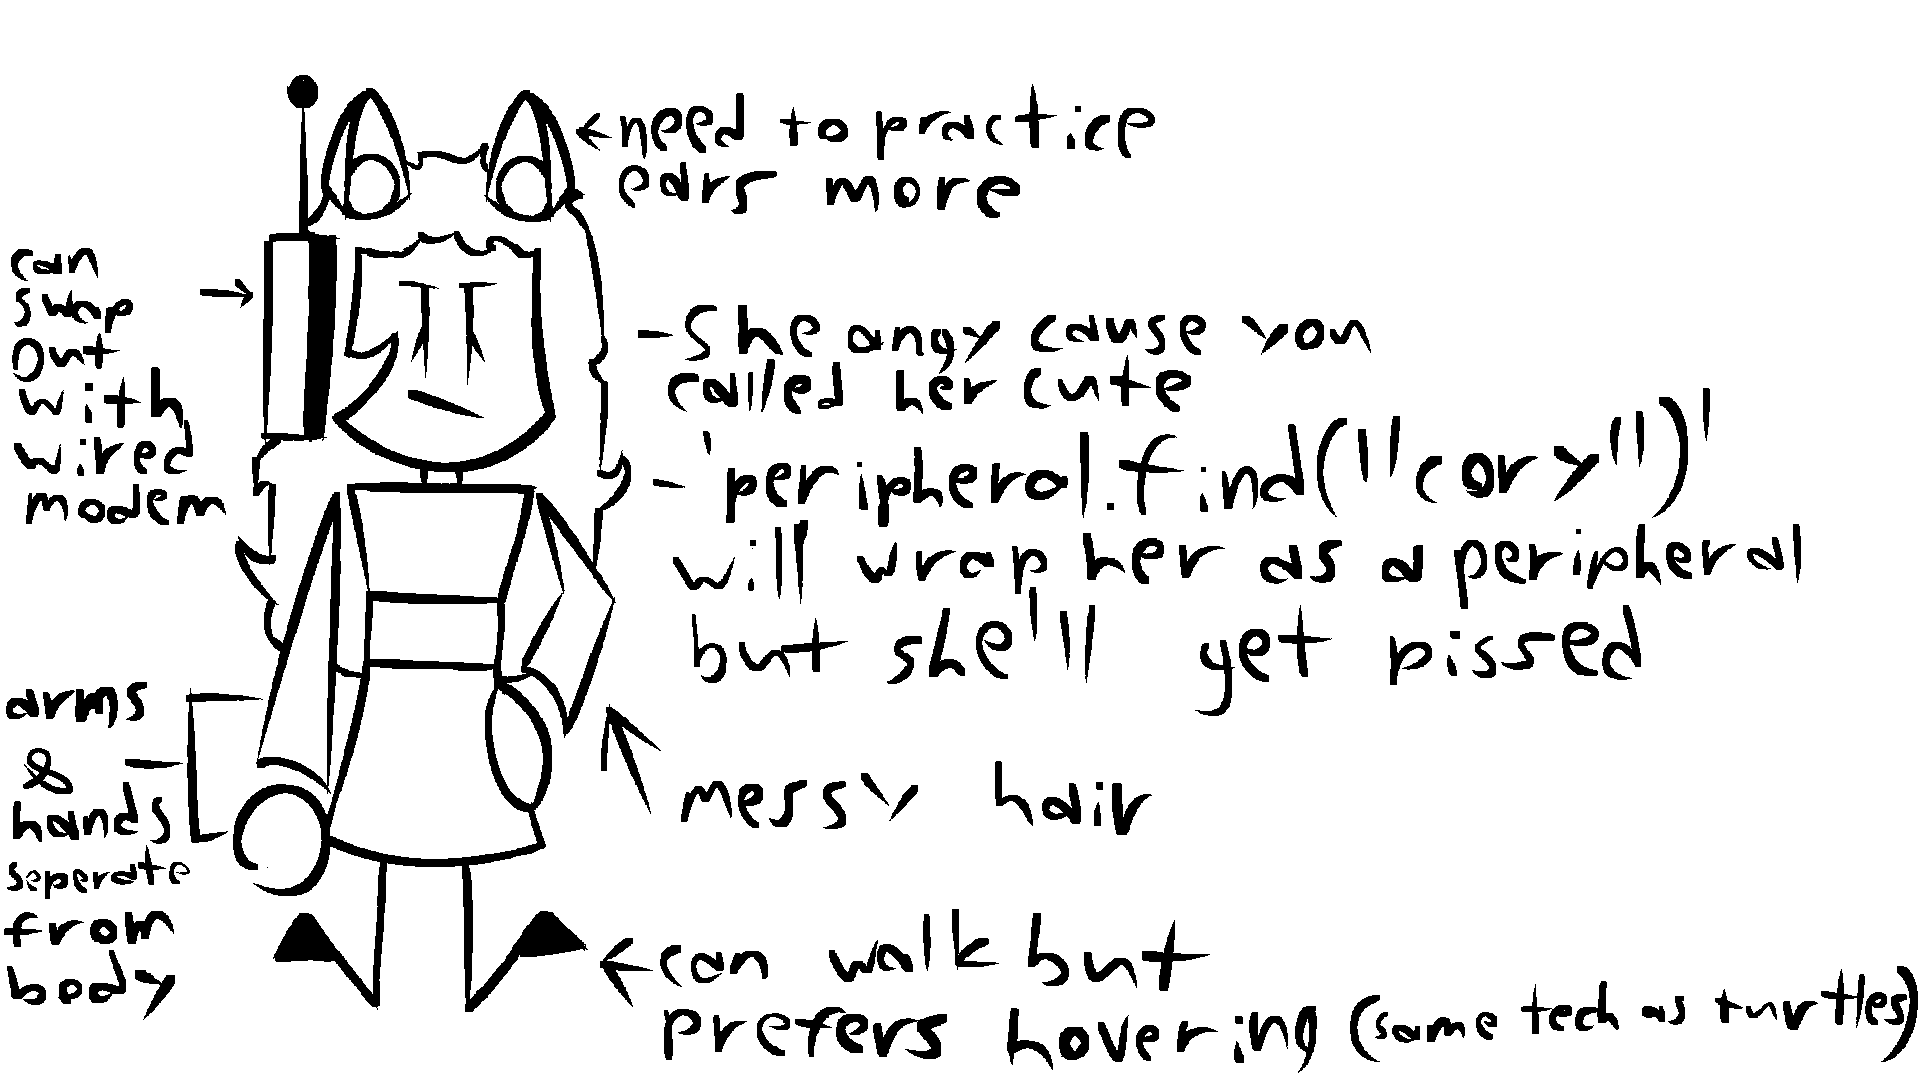 need to practice
ears more
can
swap
out
with
wired
modem
-She angy cause you
called her cute
-'peripheral.find("cory")'
will wrap her as a peripheral
but she'll get pissed
arms
&
hands
seperate
from
body
messy hair
can walk but
prefers hovering (same tech as turtles)